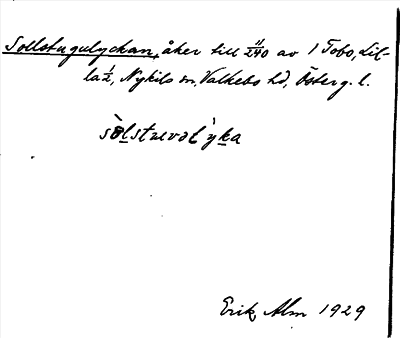 Sollstugulyckan, åker till 11/240 av 1 Tobo, Lil-
la ½, Nykils sn, Valkebo hd, Österg. l.
sòlstuvəlỳka
Erik Alm 1929